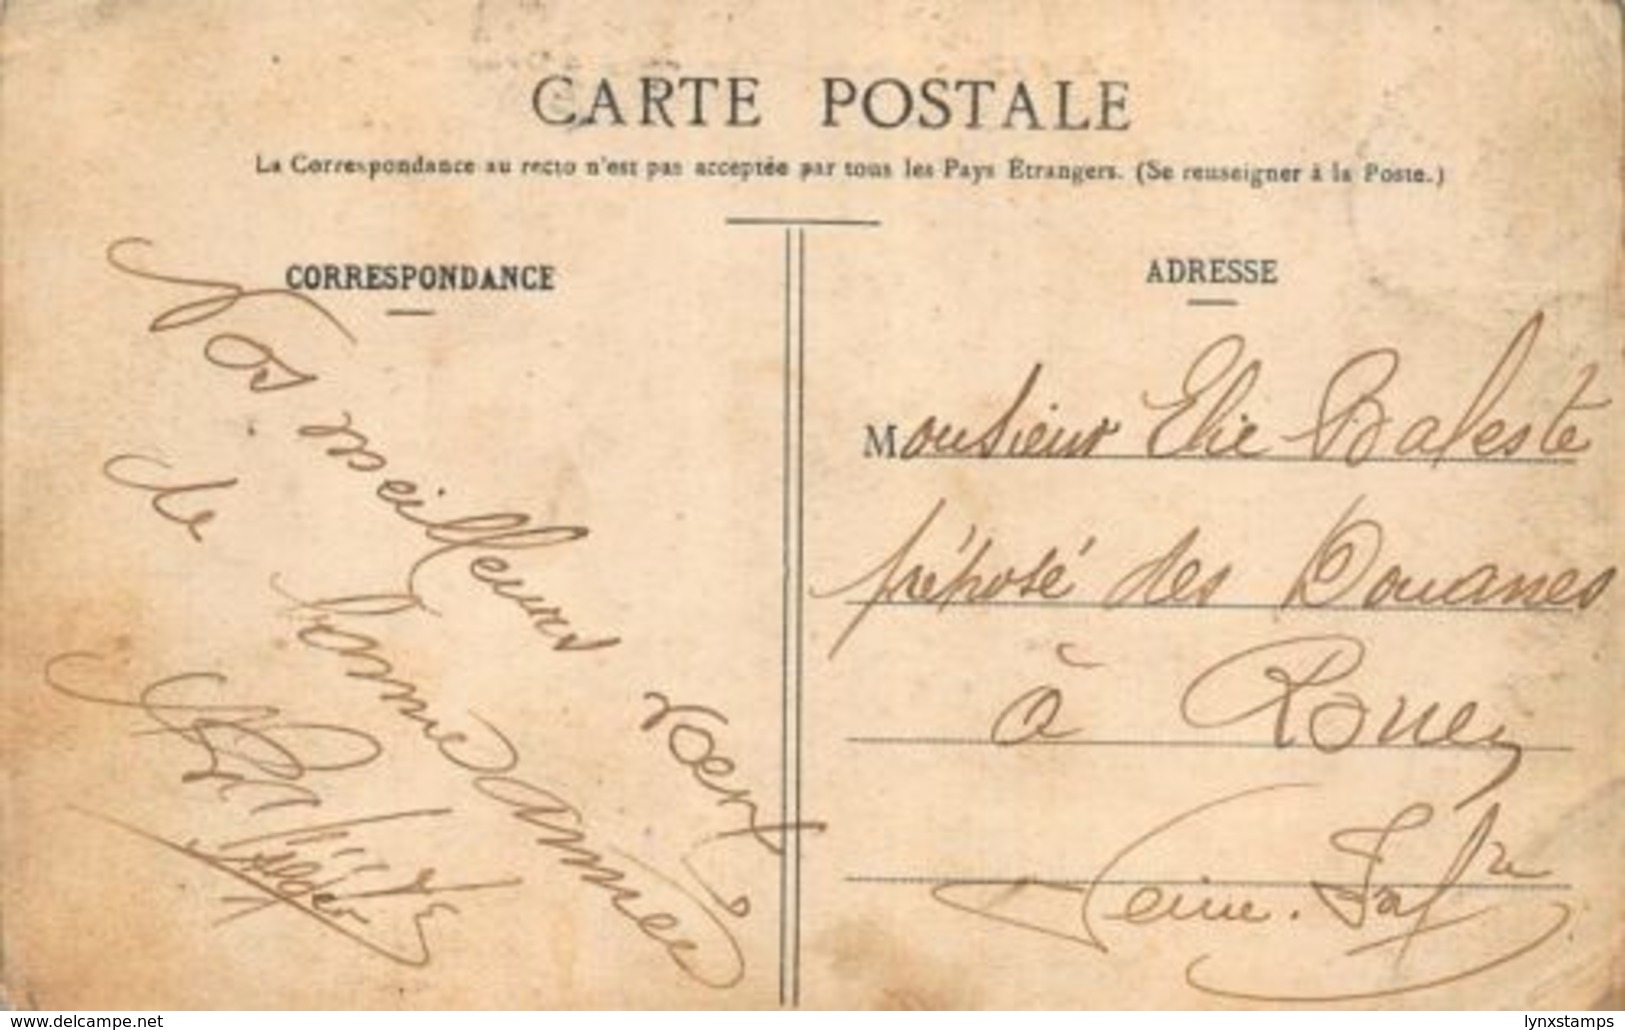 CARTE POSTALE
La Correspondance au recto n'est pas acceptée par tous les Pays Étrangers. (Se renseigner à la Poste.)
CORRESPONDANCE
Nos meilleurs vœux
de bonne année
ADRESSE
Monsieur Elie Baleste
préposé des Douanes
à Rouen
Seine. Infre
www.delcampe.net
lynxstamps